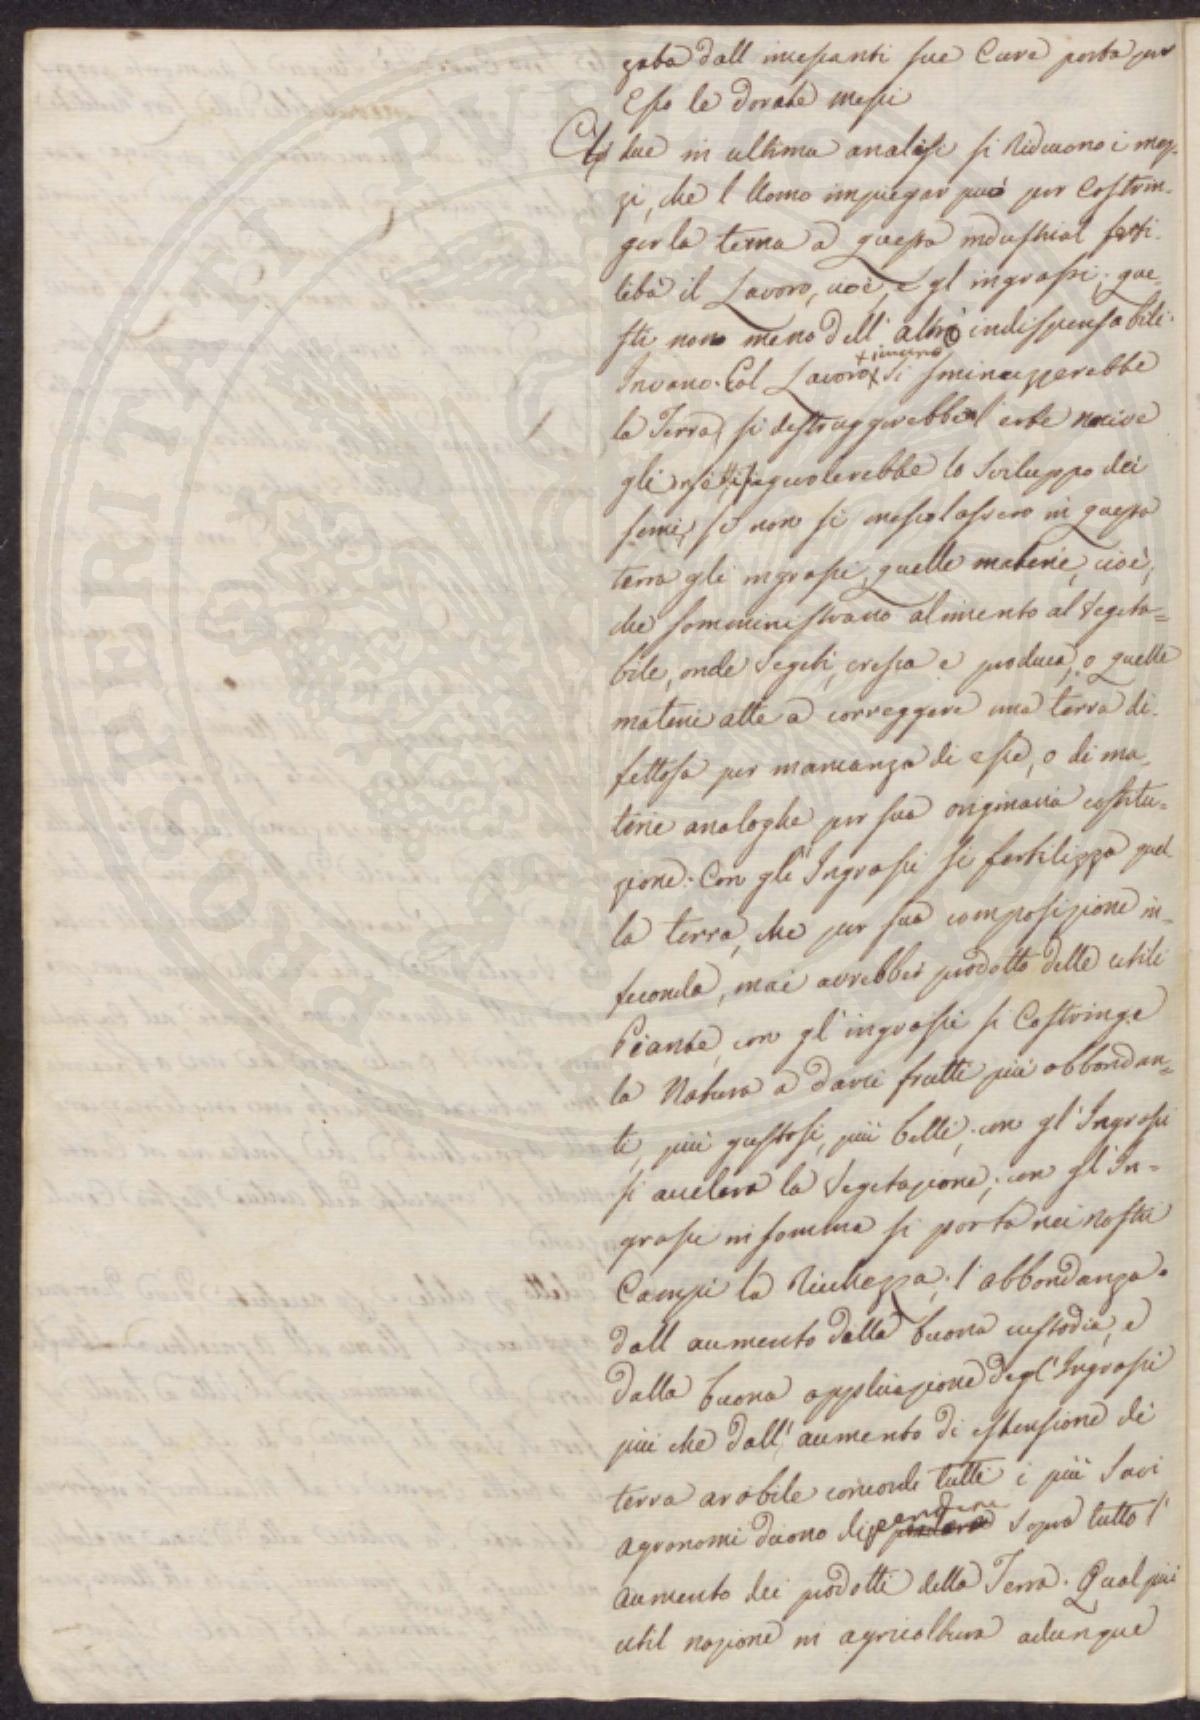 PROSPERITATI PVBLICAE
gata dall incessanti sue Cure porta per
Esso le dorate messi
due in ultima analisi si riducono i mez-
zi, che l Uomo impiegar può per Costrin-
ger la terra a questa industrial ferti-
lità il Lavoro, cioè, e gl ingrassi; que-
sti non meno dell' altro indispensabili.
Invano. Col Lavoro si sminuzzerebbe
la Terra, si distruggerebber l'erbe nocive
gli agevolerebbe lo sviluppo dei
semi, se non si mescolassero in questa
terra gli ingrassi, quelle materie, cioè,
che somministrano alimento al Vegeta=
bile, onde vegeti, cresca e produca, o quelle
materie atte a correggere una terra di-
fettosa per mancanza di esse, o di ma-
terie analoghe per sua originaria costitu-
zione. Con gli Ingrassi si fertilizza quel-
la terra, che per sua composizione in-
feconda, mai avrebbe prodotto delle utili
Piante, con gl' ingrassi si Costringe
la Natura a darci frutti più abbondan=
ti, più gustosi, più belli; con gl' Ingrassi
si accelera la Vegetazione; con gl' In-
grassi in somma si porta nei nostri
Campi la Ricchezza, l'abbondanza.
dall aumento della buona custodia, e
dalla buona applicazione degl' Ingrassi
più che dall' aumento di estensione di
terra arabile concordi tutti i più Savi
agronomi dicono dipendere sopra tutto l'
aumento dei prodotti della Terra. Qual più
util nozione in agricoltura adunque